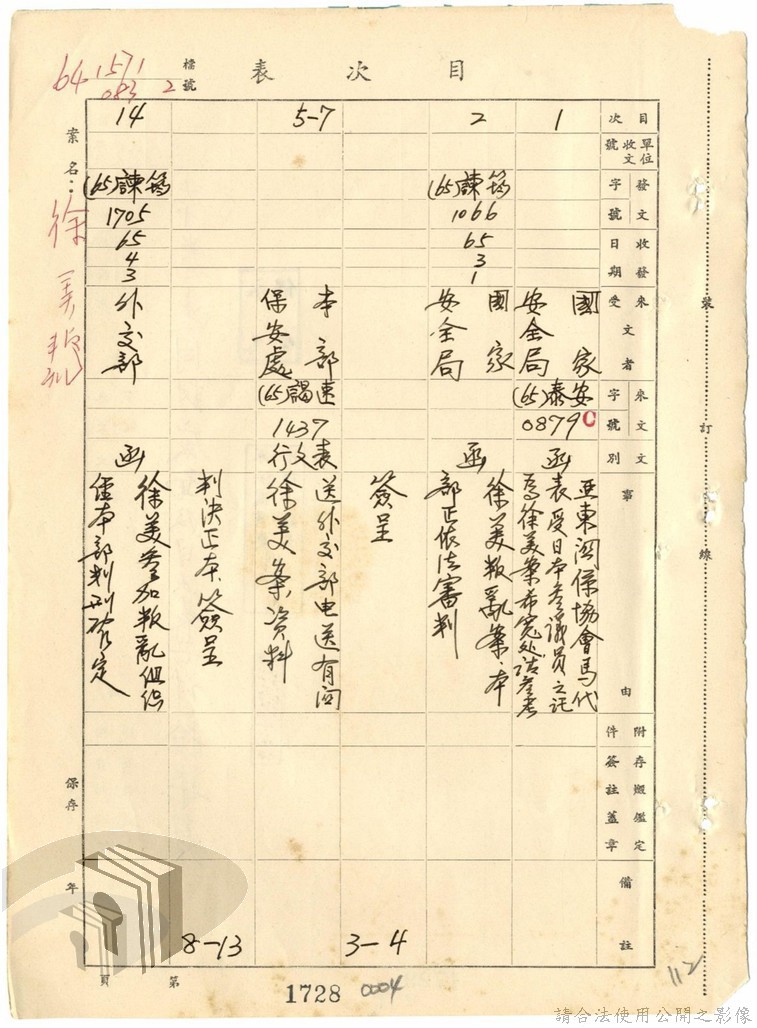 目次表
檔號
64
1571
083
2
案名：徐美叛亂
目次
單位收文號
發文字號
收發日期
來文受文者
來文字號
文別
事由
附件
存燬鑑定簽註蓋章
備註
1
國家安全局
(65)泰安
0879
C
函
亞東關係協會馬代
表受日本參議員之託
為徐美案希寬處請參考
2
(65)諫
1066
65
3
1
國家安全局
函
徐美叛亂案本
部正依法審判
簽呈
3-4
5-7
本部保安處
(65)謁速
1437
行文表
送外交部電送有關
徐美案資料
判決正本簽呈
8-13
14
(65)諫
1705
65
4
3
外交部
函
徐美參加叛亂組織
經本部判刑確定
裝訂線
保存年
第頁
1728
0004
112
請合法使用公開之影像